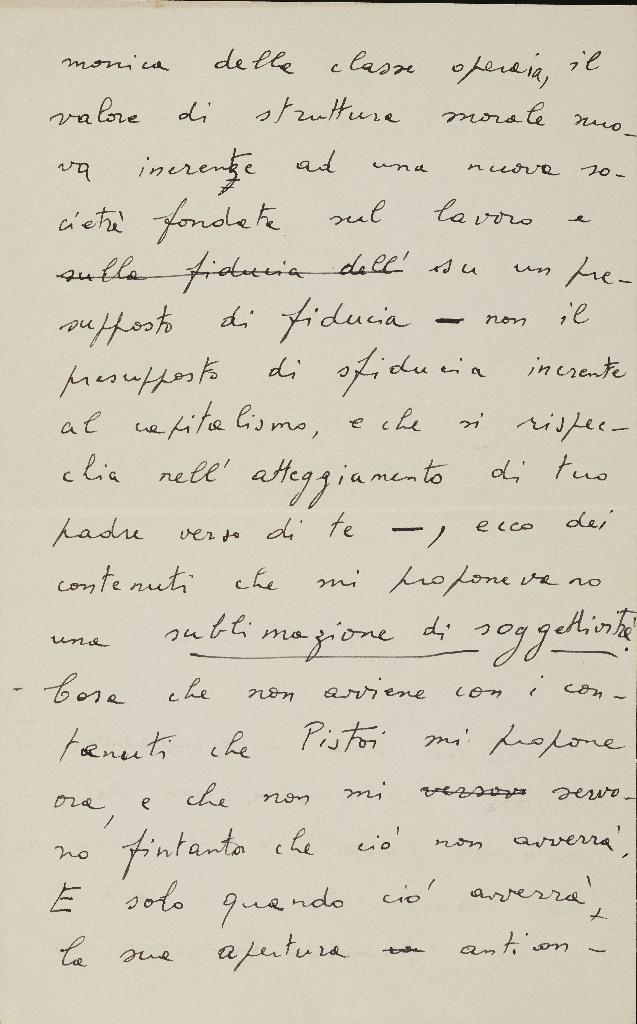 monica della classe operaia, il
valore di struttura morale nuo-
va inerente ad una nuova so-
cietà fondata sul lavoro e
sulla fiducia dell' su un pre-
supposto di fiducia — non il
presupposto di sfiducia inerente
al capitalismo, e che si rispec-
chia nell' atteggiamento di tuo
padre verso di te —, ecco dei
contenuti che mi proponevano
una sublimazione di soggettività.
Cosa che non avviene con i con-
tenuti che Pistoi mi propone
ora, e che non mi servo-
no fintanto che ciò non avverrà.
E solo quando ciò avverrà,
la sua apertura antion-